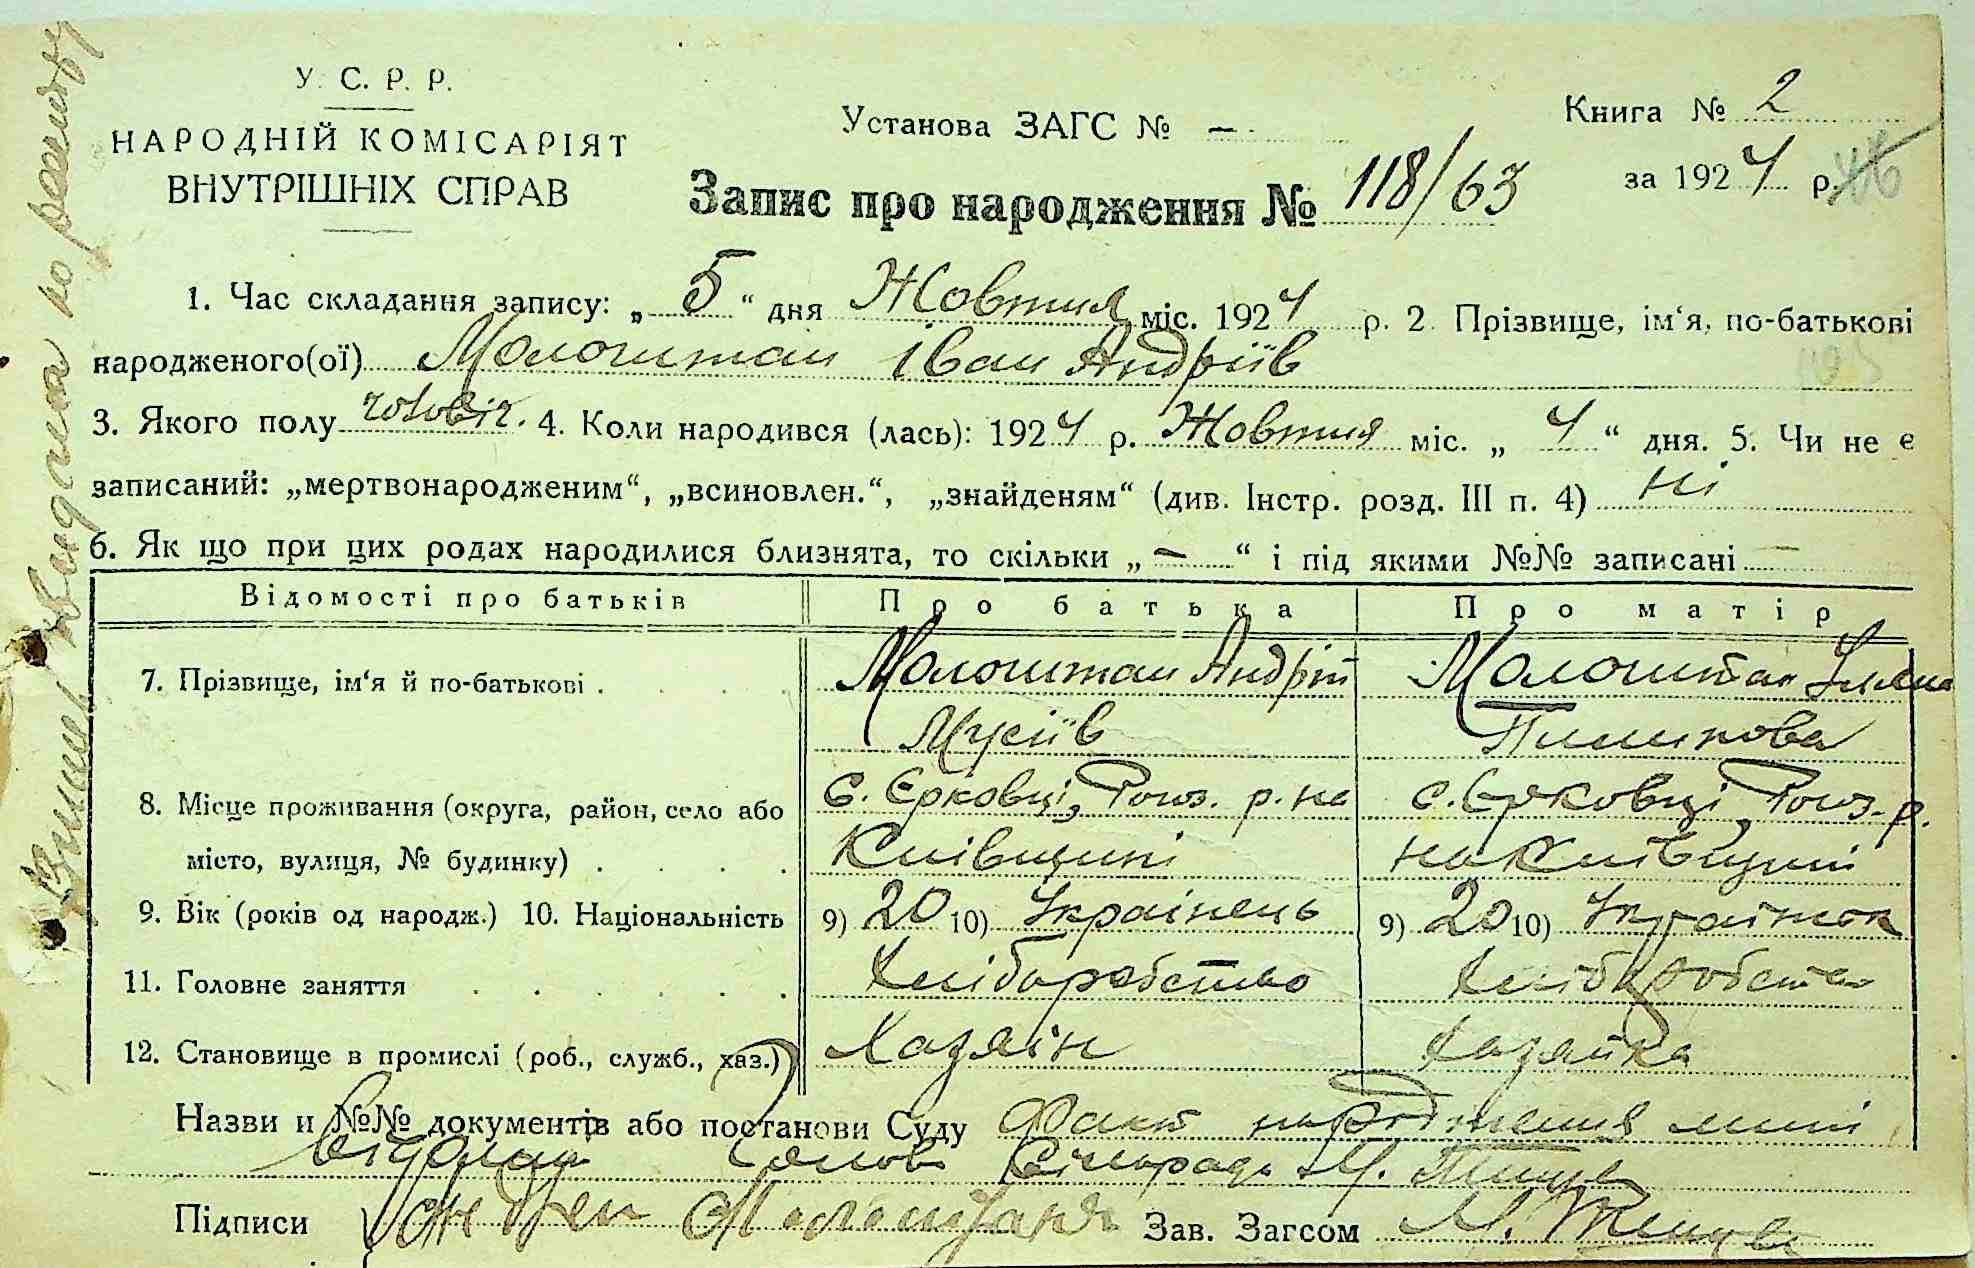 У. С. Р. Р.
НАРОДНІЙ КОМІСАРІЯТ
ВНУТРІШНІХ СПРАВ
Установа ЗАГС № —
Книга № 2
за 1924 р.
Запис про народження № 118/63
1. Час складання запису: „ 5 “ дня Жовтня міс. 1924 р. 2. Прізвище, ім‘я, по-батькові
народженого(ої) Молоштан Іван Андріїв
3. Якого полу чоловіч. 4. Коли народився (лась): 1924 р. Жовтня міс. „ 4 “ дня. 5. Чи не є
записаний: „мертвонародженим“, „всиновлен.“, „знайденям“ (див. Інстр. розд. III п. 4) ні
6. Як що при цих родах народилися близнята, то скільки „ — “ і під якими №№ записані —
Відомості про батьків Про батька Про матір
7. Прізвище, ім‘я й по-батькові . . . . Молоштан Андрій Молоштан Уляна
Мусіїв Пилипова
8. Місце проживання (округа, район, село або с. Єрковці, р. на с. Єрковці р.
місто, вулиця, № будинку) . . . . Київщині на Київщині
9. Вік (років од народж.) 10. Національність 9) 20 10) Українець 9) 20 10) Українка
11. Головне заняття . . . . . . Хліборобство Хліборобство
12. Становище в промислі (роб., служб., хаз.) Хазяїн Хазяйка
Назви и №№ документів або постанови Суду Факт народження мині
відомий Голова Сільради М.
Підписи Молоштан Зав. Загсом М.